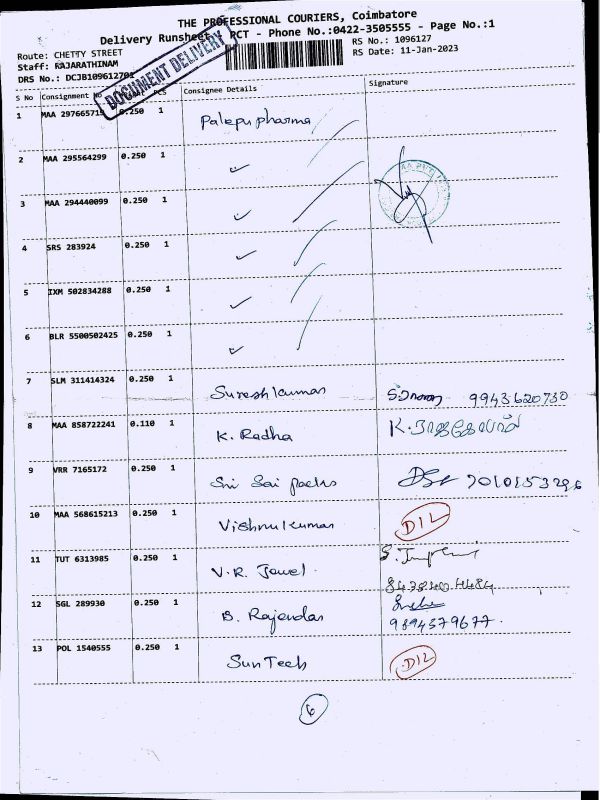 THE PROFESSIONAL COURIERS, Coimbatore
Delivery Runsheet PCT - Phone No.:0422-3505555 - Page No.:1
Route: CHETTY STREET
RS No.: 1096127
Staff: RAJARATHINAM
RS Date: 11-Jan-2023
DRS No.: DCJB109612701
DOCUMENT DELIVERY
S No Consignment No PCS Consignee Details Signature
1 MAA 29766571 0.250 1 Palepu pharma
2 MAA 295564299 0.250 1 ✓
3 MAA 294440099 0.250 1 ✓
4 SRS 283924 0.250 1 ✓
5 IXM 502834288 0.250 1 ✓
6 BLR 5500502425 0.250 1 ✓
7 SLM 311414324 0.250 1 Suresh kumar 9943620730
8 MAA 858722241 0.110 1 K. Radha
9 VRR 7165172 0.250 1 Sri Sai packs
10 MAA 568615213 0.250 1 Vishnu kumar D12
11 TUT 6313985 0.250 1 V.R. Jewel
12 SGL 289930 0.250 1 B. Rajendar 9894379677
13 POL 1540555 0.250 1 Sun Tech D12
6